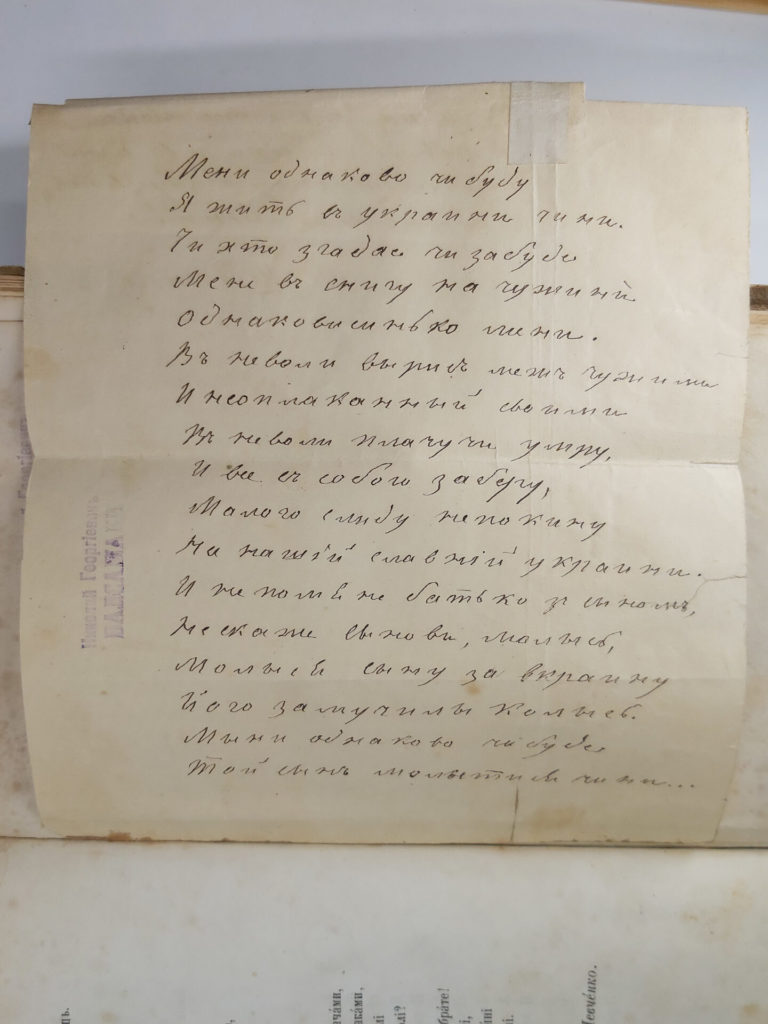 Мени однаково чи буду
Я жить въ украини чи ни.
Чи хто згадае чи забуде
Мене въ снигу на чужинѣ
Однаковисинько мени.
Въ неволи вырисъ межъ чужими
И неоплаканный своими
Въ неволи плачучи умру,
И все съ собою заберу,
Малого слиду непокину
На нашій славній украини.
И не помѣне батько зъ сыномъ,
Не скаже сынови, молысь,
Молысѣ сыну за вкраину
Його замучилы колысь.
Мыни однаково чи буде
Той сынъ молытисѣ чи ни...
Николай Георгіевичъ
чами,
ками,
лі?
брáте!
і,
Шевчéнко.